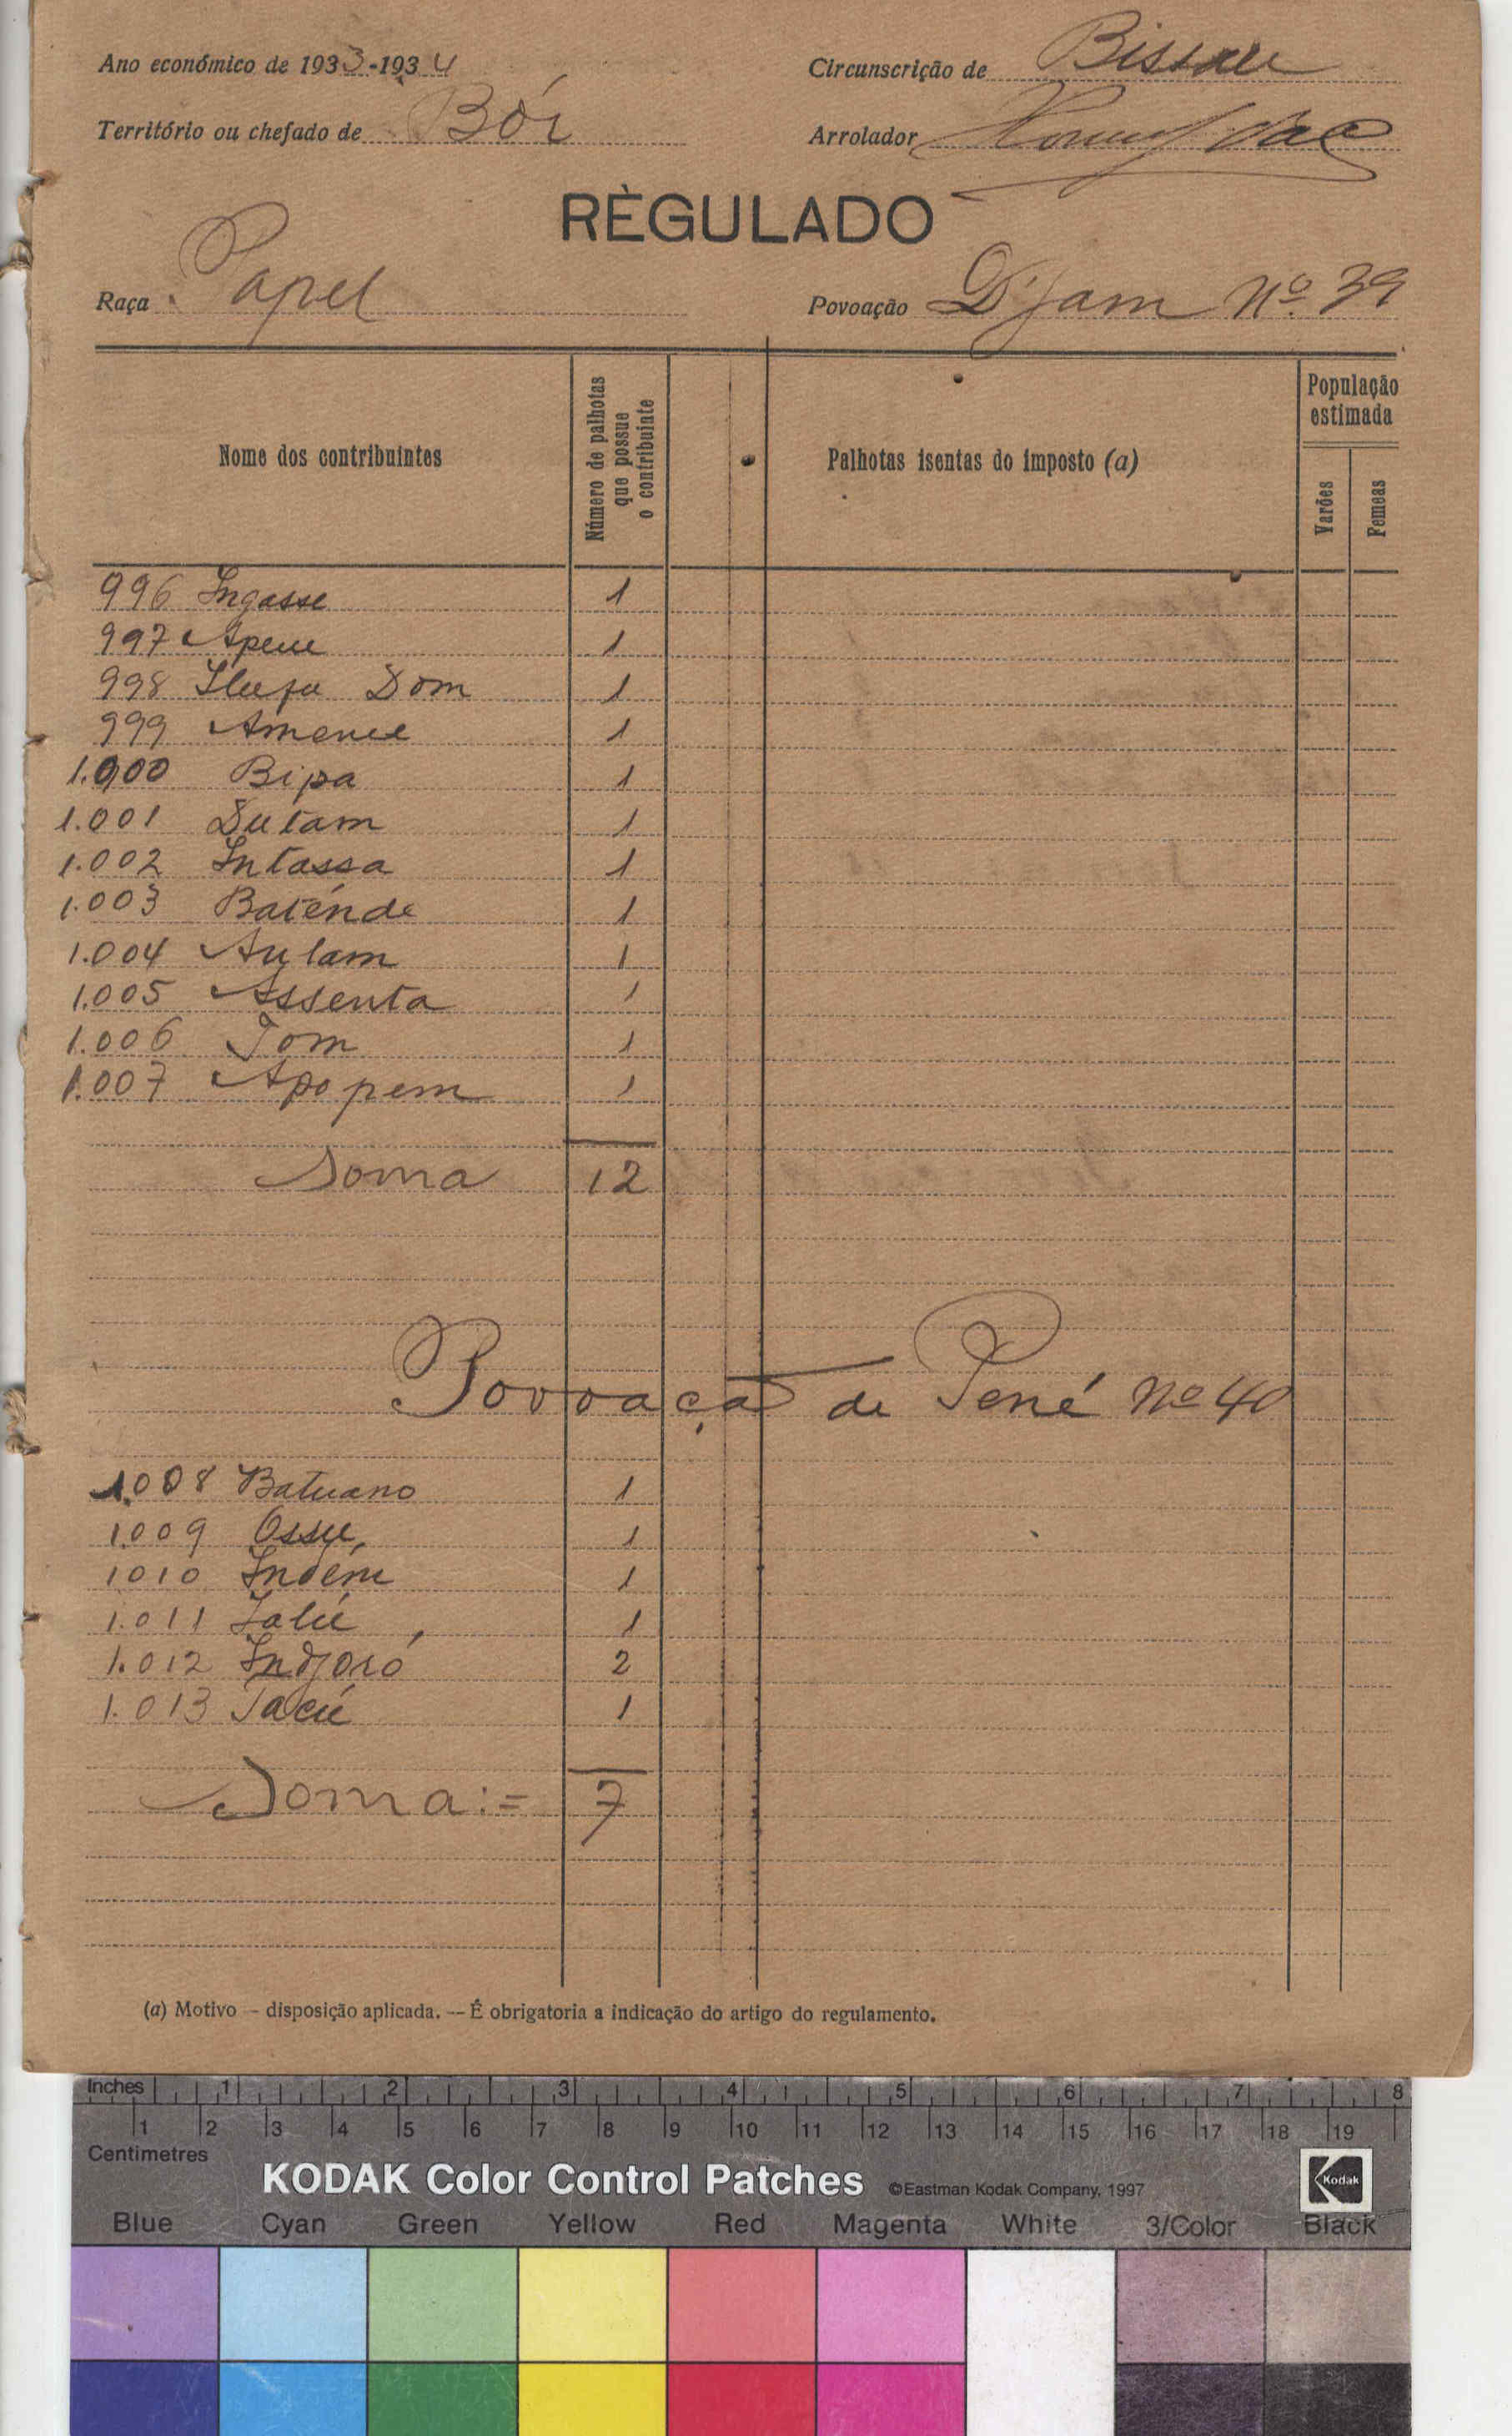 Ano económico de 1933-1934
Circunscrição de Bissau
Território ou chefado de Bór
Arrolador
RÈGULADO
Raça Papel
Povoação D'jam Nº 39
Nome dos contribuintes
Número de palhotas que possue o contribuinte
Palhotas isentas do imposto (a)
População estimada
Varões
Femeas
996 Ingasse 1
997 1
998 Dom 1
999 1
1.000 Bipa 1
1.001 Dutam 1
1.002 Intassa 1
1.003 Baténde 1
1.004 Aulam 1
1.005 Assenta 1
1.006 Tom 1
1.007 Apopem 1
Soma 12
Povoação de Pené Nº 40
1.008 Batuano 1
1.009 Ossu 1
1010 1
1.011 1
1.012 Indjoró 2
1.013 Tacú 1
Soma:= 7
(a) Motivo — disposição aplicada. — É obrigatoria a indicação do artigo do regulamento.
Inches 1 2 3 4 5 6 7 8
1 2 3 4 5 6 7 8 9 10 11 12 13 14 15 16 17 18 19
Centimetres
KODAK Color Control Patches ©Eastman Kodak Company, 1997 Kodak
Blue Cyan Green Yellow Red Magenta White 3/Color Black